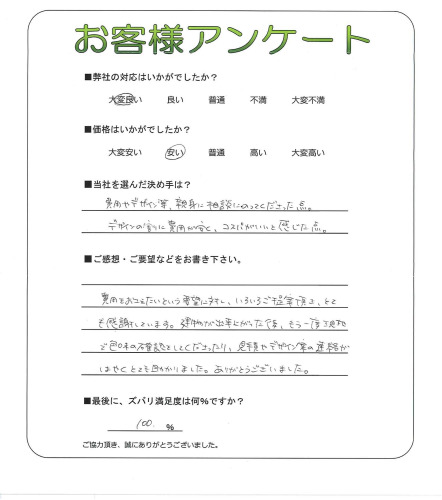 お客様アンケート
■弊社の対応はいかがでしたか？
大変良い 良い 普通 不満 大変不満
■価格はいかがでしたか？
大変安い 安い 普通 高い 大変高い
■当社を選んだ決め手は？
費用やデザイン等、親身に相談にのってくださった点。
デザインの割に費用が安く、コスパがいいと感じた点。
■ご感想・ご要望などをお書き下さい。
費用をおさえたいという要望に対し、いろいろご提案頂き、とて
も感謝しています。建物が出来上がった後、もう一度現地
で色味の確認をしてくださったり、見積やデザイン案の連絡が
はやくとても助かりました。ありがとうございました。
■最後に、ズバリ満足度は何％ですか？
100. ％
ご協力頂き、誠にありがとうございました。